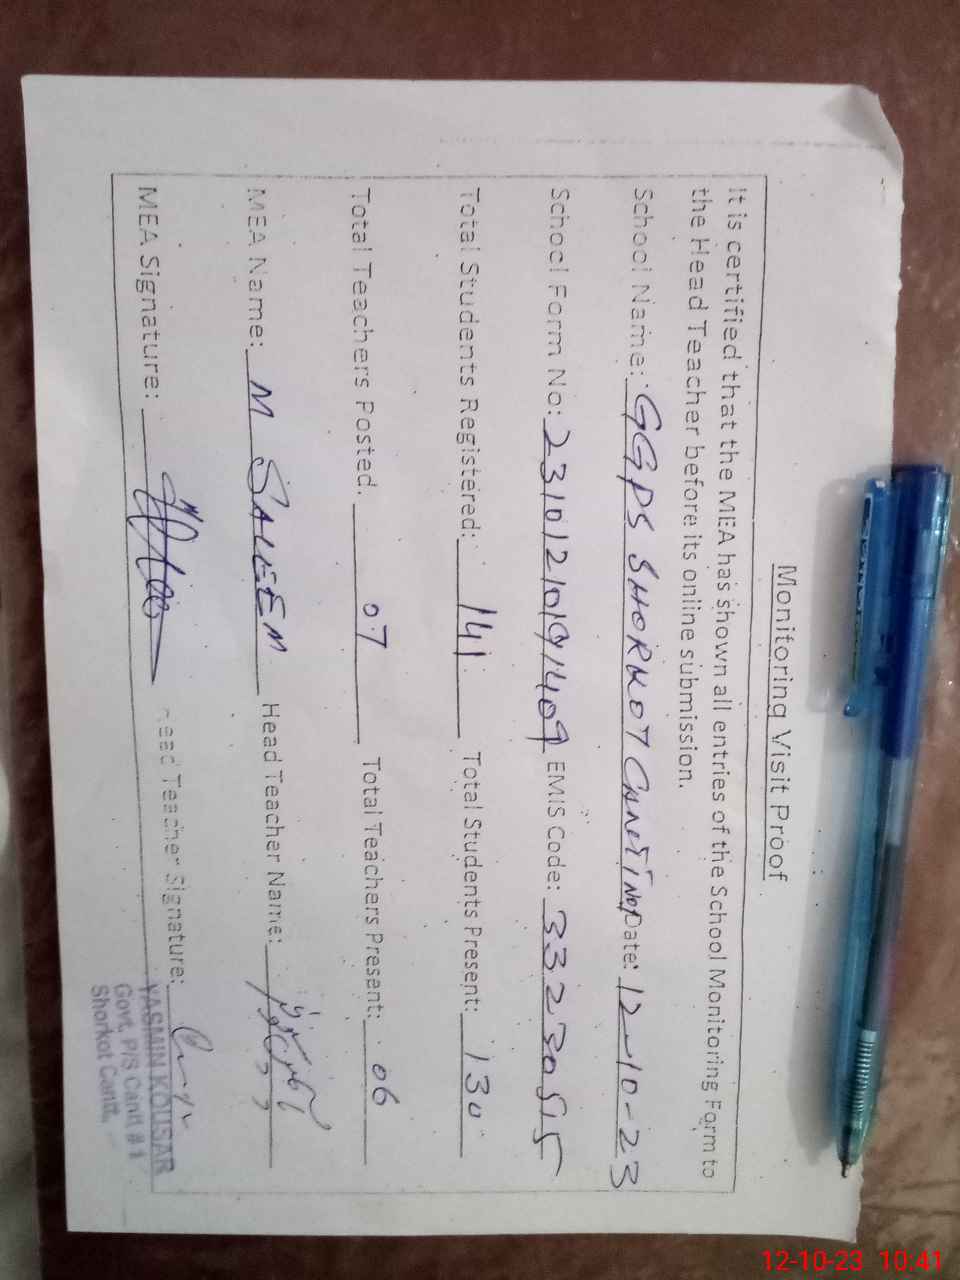 Monitoring Visit Proof
It is certified that the MEA has shown all entries of the School Monitoring Form to
the Head Teacher before its online submission.
School Name: GGPS SHORKOT Cantt No1 Date: 12-10-23
School Form No: 23101210191409 EMIS Code: 33230515
Total Students Registered: 141 Total Students Present: 130
Total Teachers Posted. 07 Total Teachers Present: 06
MEA Name: M SALEEM Head Teacher Name:
MEA Signature: Head Teacher Signature:
YASMIN KOUSAR
Govt. P/S Cantt # 1
Shorkot Cantt.
12-10-23 10:41